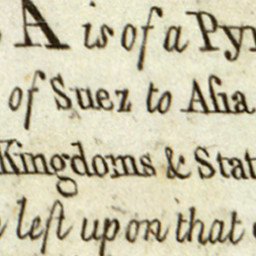 A is of a Pyr
of Suez to Aſia
Kingdoms & Stat
left upon that